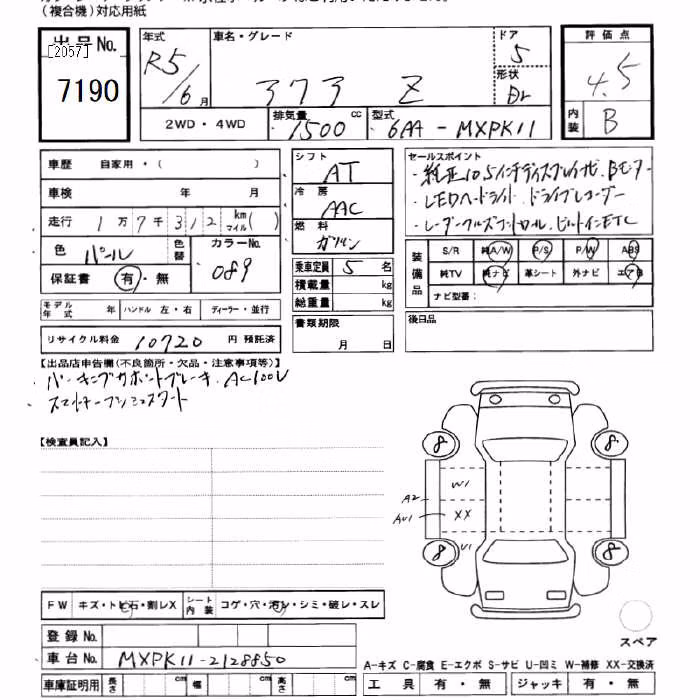 (複合機)対応用紙
出品No.
[2057]
7190
年式 R5/6月
車名・グレード
アクア Z
ドア 5
形状 5Dr
評価点 4.5
内装 B
2WD・4WD
排気量 1500 cc
型式 6AA - MXPK11
車歴 自家用・( )
車検 年 月
走行 1万7千312 km マイル( )
色 パール 色替
カラーNo. 089
保証書 有・無
シフト AT
冷房 AAC
燃料 ガソリン
乗車定員 5 名
積載量 kg
総重量 kg
書類期限
月 日
セールスポイント
・純正10.5インチディスプレイナビ、Bモニター
・LEDヘッドライト ドライブレコーダー
・レーダークルーズコントロール、ビルトインETC
装備品
S/R 純A/W P/S P/W ABS
純TV 純ナビ 革シート 外ナビ エアB
ナビ型番:
後日品
モデル年式 年 ハンドル 左・右 ディーラー・並行
リサイクル料金 10720 円 預託済
【出品店申告欄(不良箇所・欠品・注意事項等)】
・パーキングサポートブレーキ、AC100V
・スマートキープッシュスタート
【検査員記入】
8 8
W1
A2
XX
AU1
U1
8 8
スペア
FW キズ・トビ石・割レX
シート内装 コゲ・穴・汚レ・シミ・破レ・スレ
登録No.
車台No. MXPK11-2128850
車庫証明用 長さ cm 幅 cm 高さ cm
A-キズ C-腐食 E-エクボ S-サビ U-凹ミ W-補修 XX-交換済
工具 有・無 ジャッキ 有・無